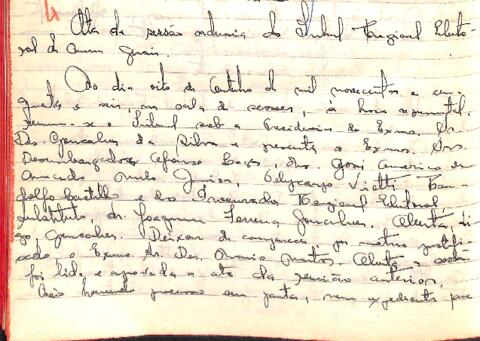 Ata da sessão ordinaria do Tribunal Regional Eleito-
ral de Minas Gerais.
Ao dia oito de Outubro de mil novecentos e cin-
quenta e seis, na sala de sessões, à hora regimental,
reuniu-se o Tribunal sob a Presidencia do Exmo. Sr.
Des. Gonçalves da Silva e presente o Exmo. Srs.
Desembargadores Afonso Lages, drs. Americo
Amado Junior, Policarpo Viotti,
Castilho e do Procurador Regional Eleitoral
substituto, dr. Joaquim Ferreira Gonçalves. Aberta,
Gonçalves. Deixou de comparecer, por motivo justifi-
cado o Exmo. Sr. Des. Onorio Aberta a sessão
foi lida e aprovada a ata da reunião anterior.
Não havendo processo em pauta, nem expediente